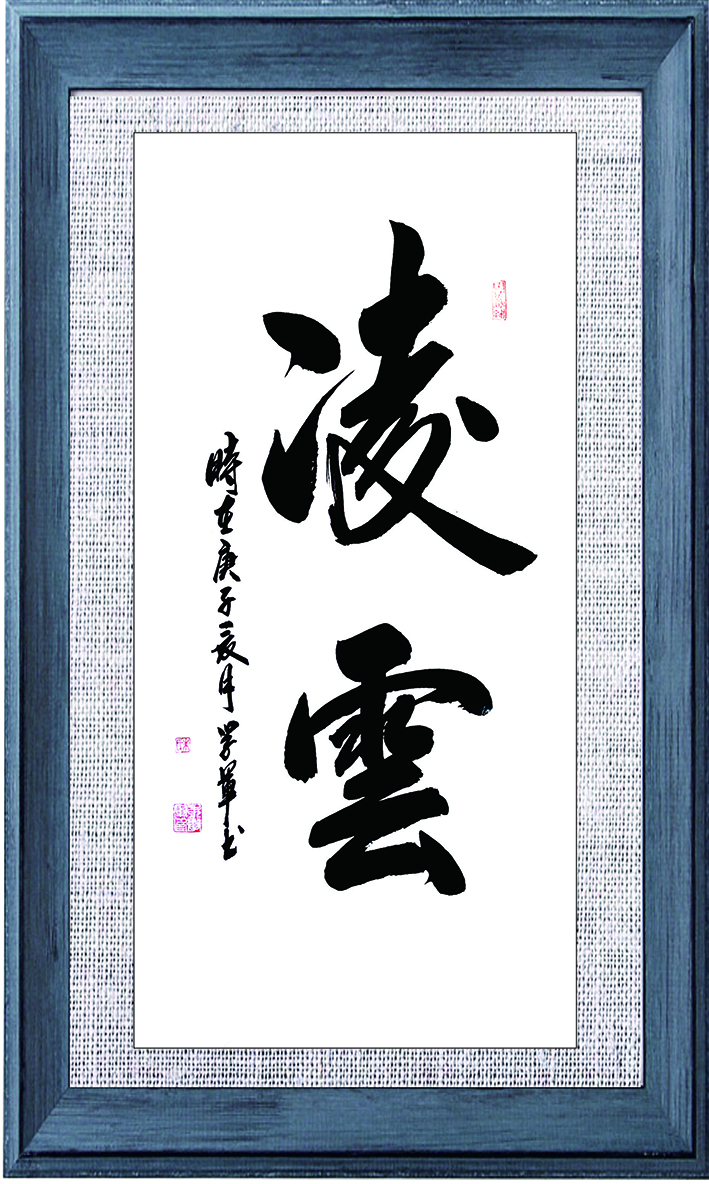 凌雲
時在庚子夏月学軍书